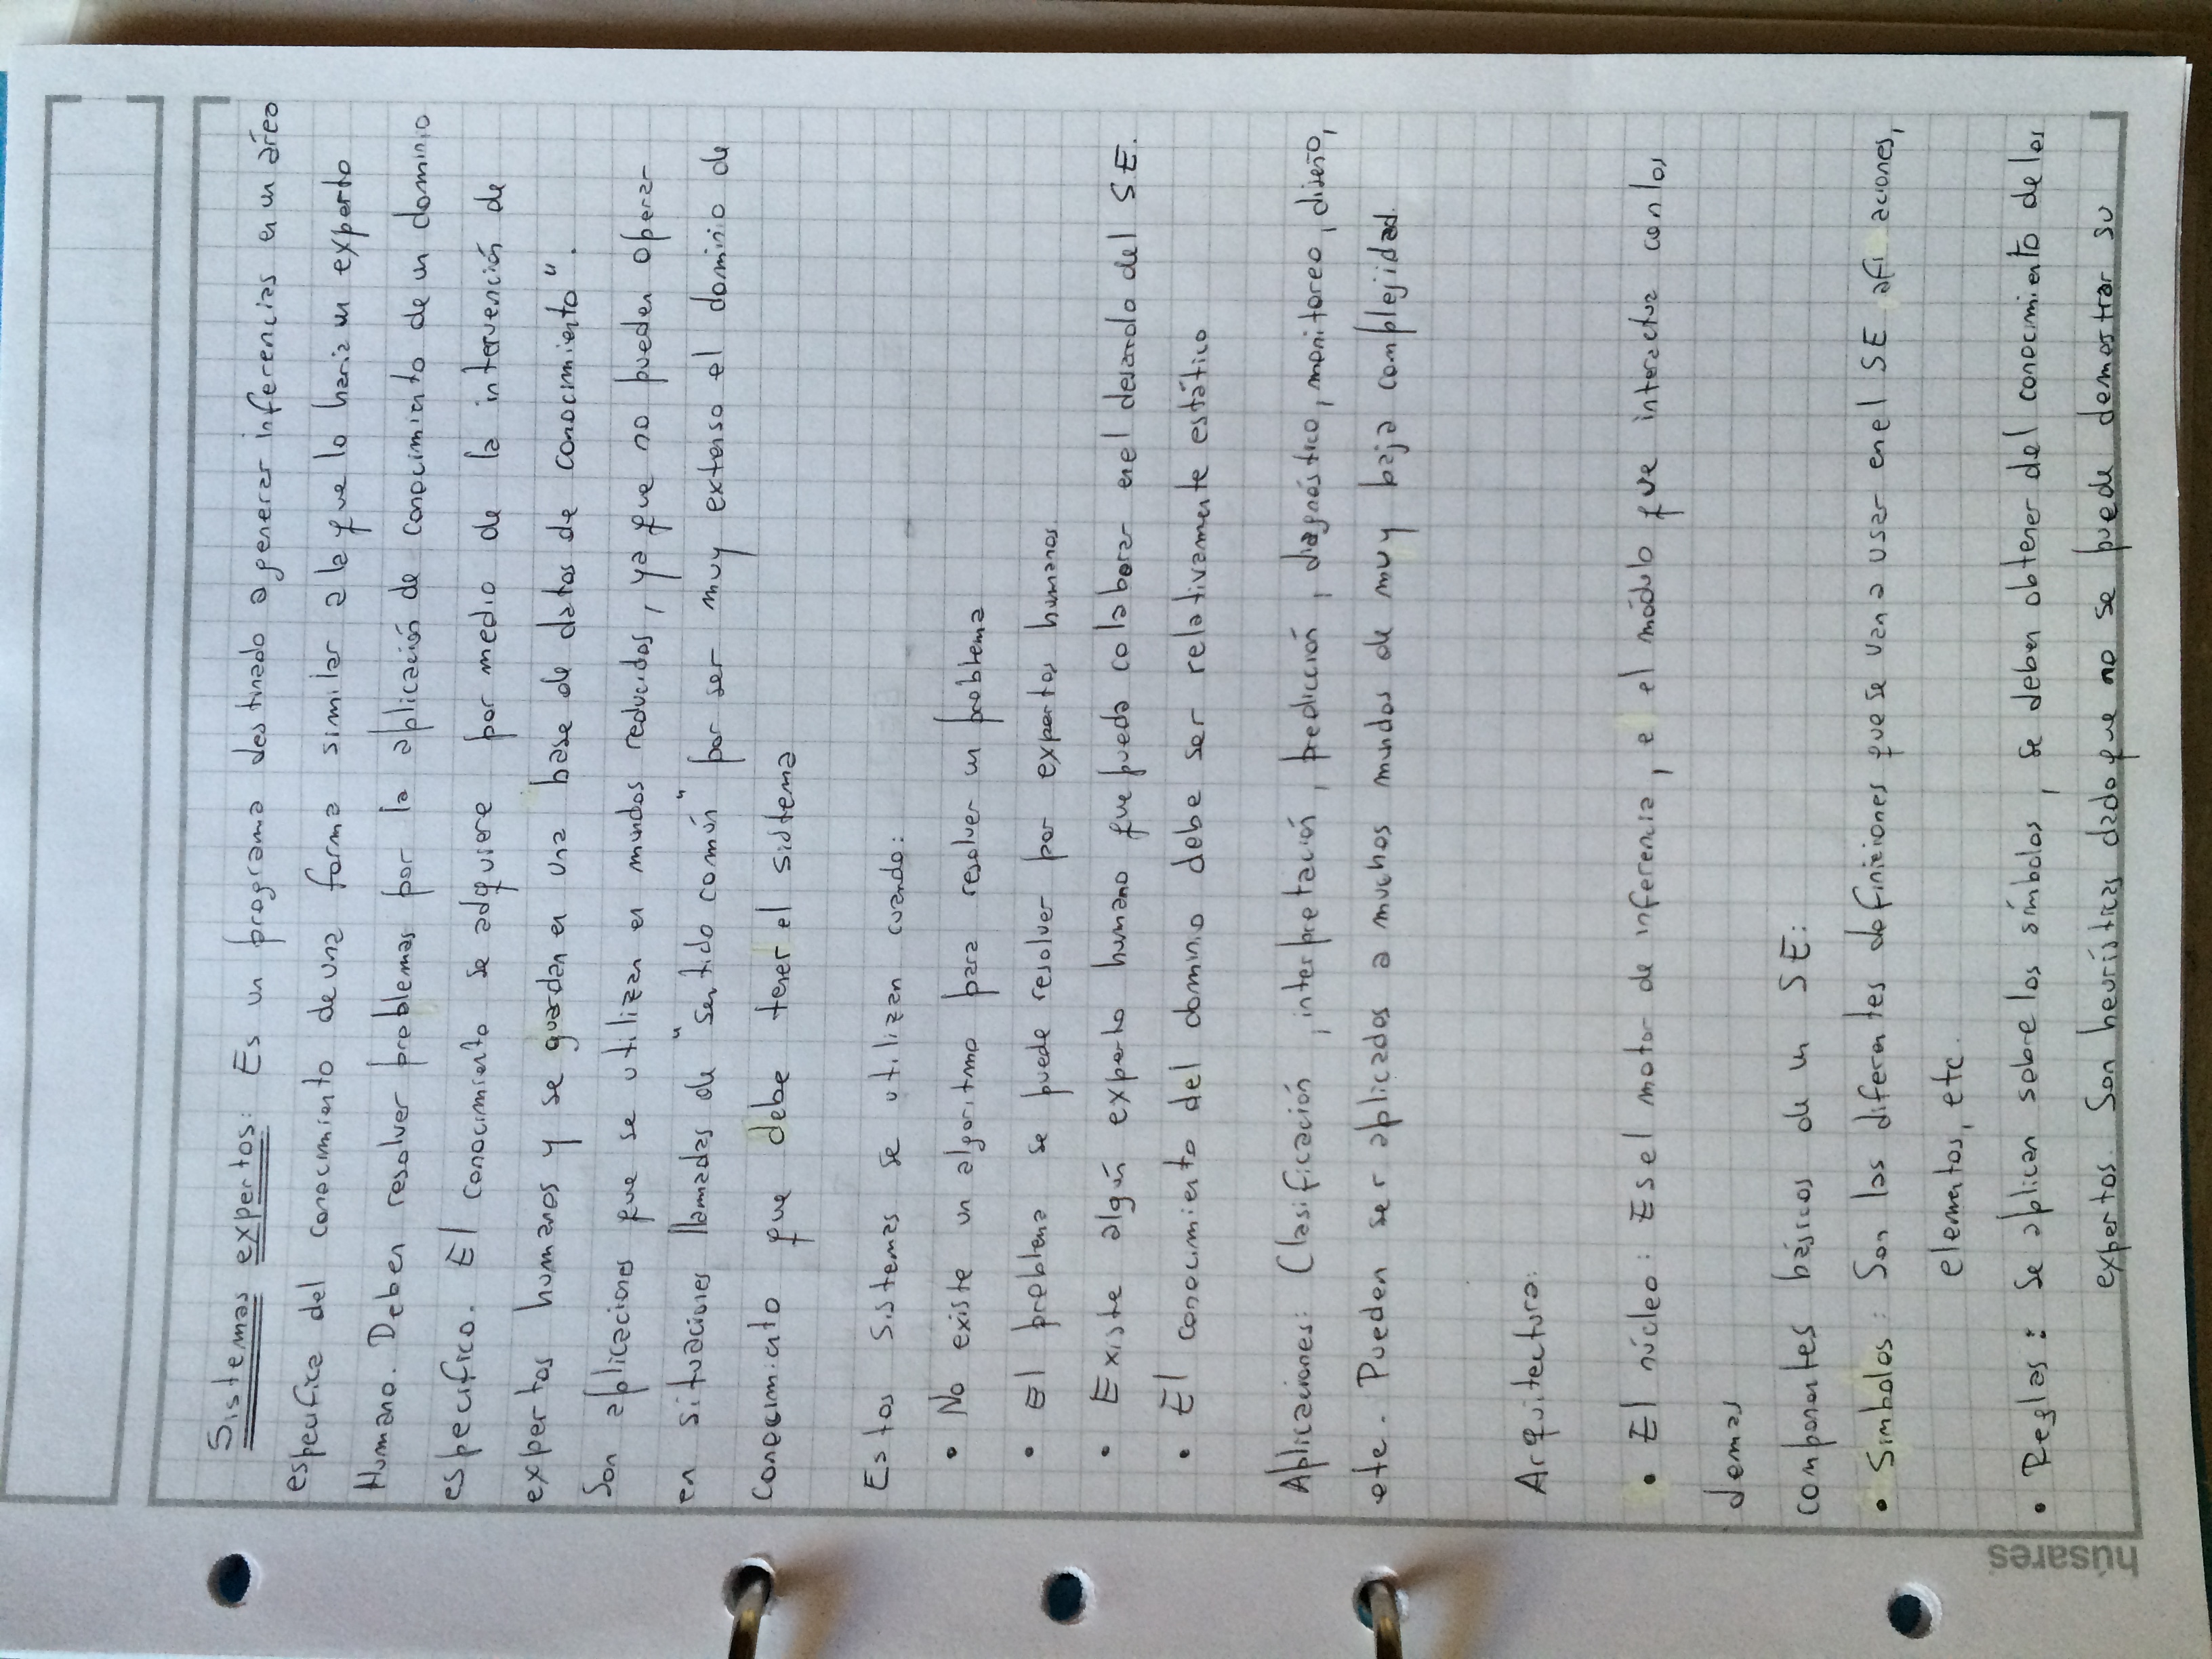 Sistemas expertos: Es un programa destinado a generar inferencias en un área
especifica del conocimiento de una forma similar a la que lo haria un experto
Humano. Deben resolver problemas por la aplicación de conocimiento de un dominio
especifico. El conocimiento se adquiere por medio de la intervención de
expertos humanos y se guardan en una base de datos de conocimiento".
Son aplicaciones que se utilizan en mundos reducidos, ya que no pueden operar
en situaciones llamadas de "sentido común" por ser muy extenso el dominio de
conocimiento que debe tener el sistema
Estos sistemas se utilizan cuando:
• No existe un algoritmo para resolver un problema
• El problema se puede resolver por expertos humanos.
• Existe algún experto humano que pueda colaborar en el desarrolo del SE.
• El conocimiento del dominio debe ser relativamente estático
Aplicaciones: Clasificación, interpretación, predicción, diagnóstico, monitoreo, diseño,
etc. Pueden ser aplicados a muchos mundos de muy baja complejidad.
Arquitectura:
• El núcleo: Es el motor de inferencia, e el módulo que interactua con los
demas
componentes básicos de un SE:
• Simbolos: Son las diferentes definiciones que se van a usar en el SE aciones,
elementos, etc.
• Reglas: Se aplican sobre los símbolos, se deben obtener del conocimiento de los
expertos. Son heurísticas dado que no se puede demostrar su
húsares